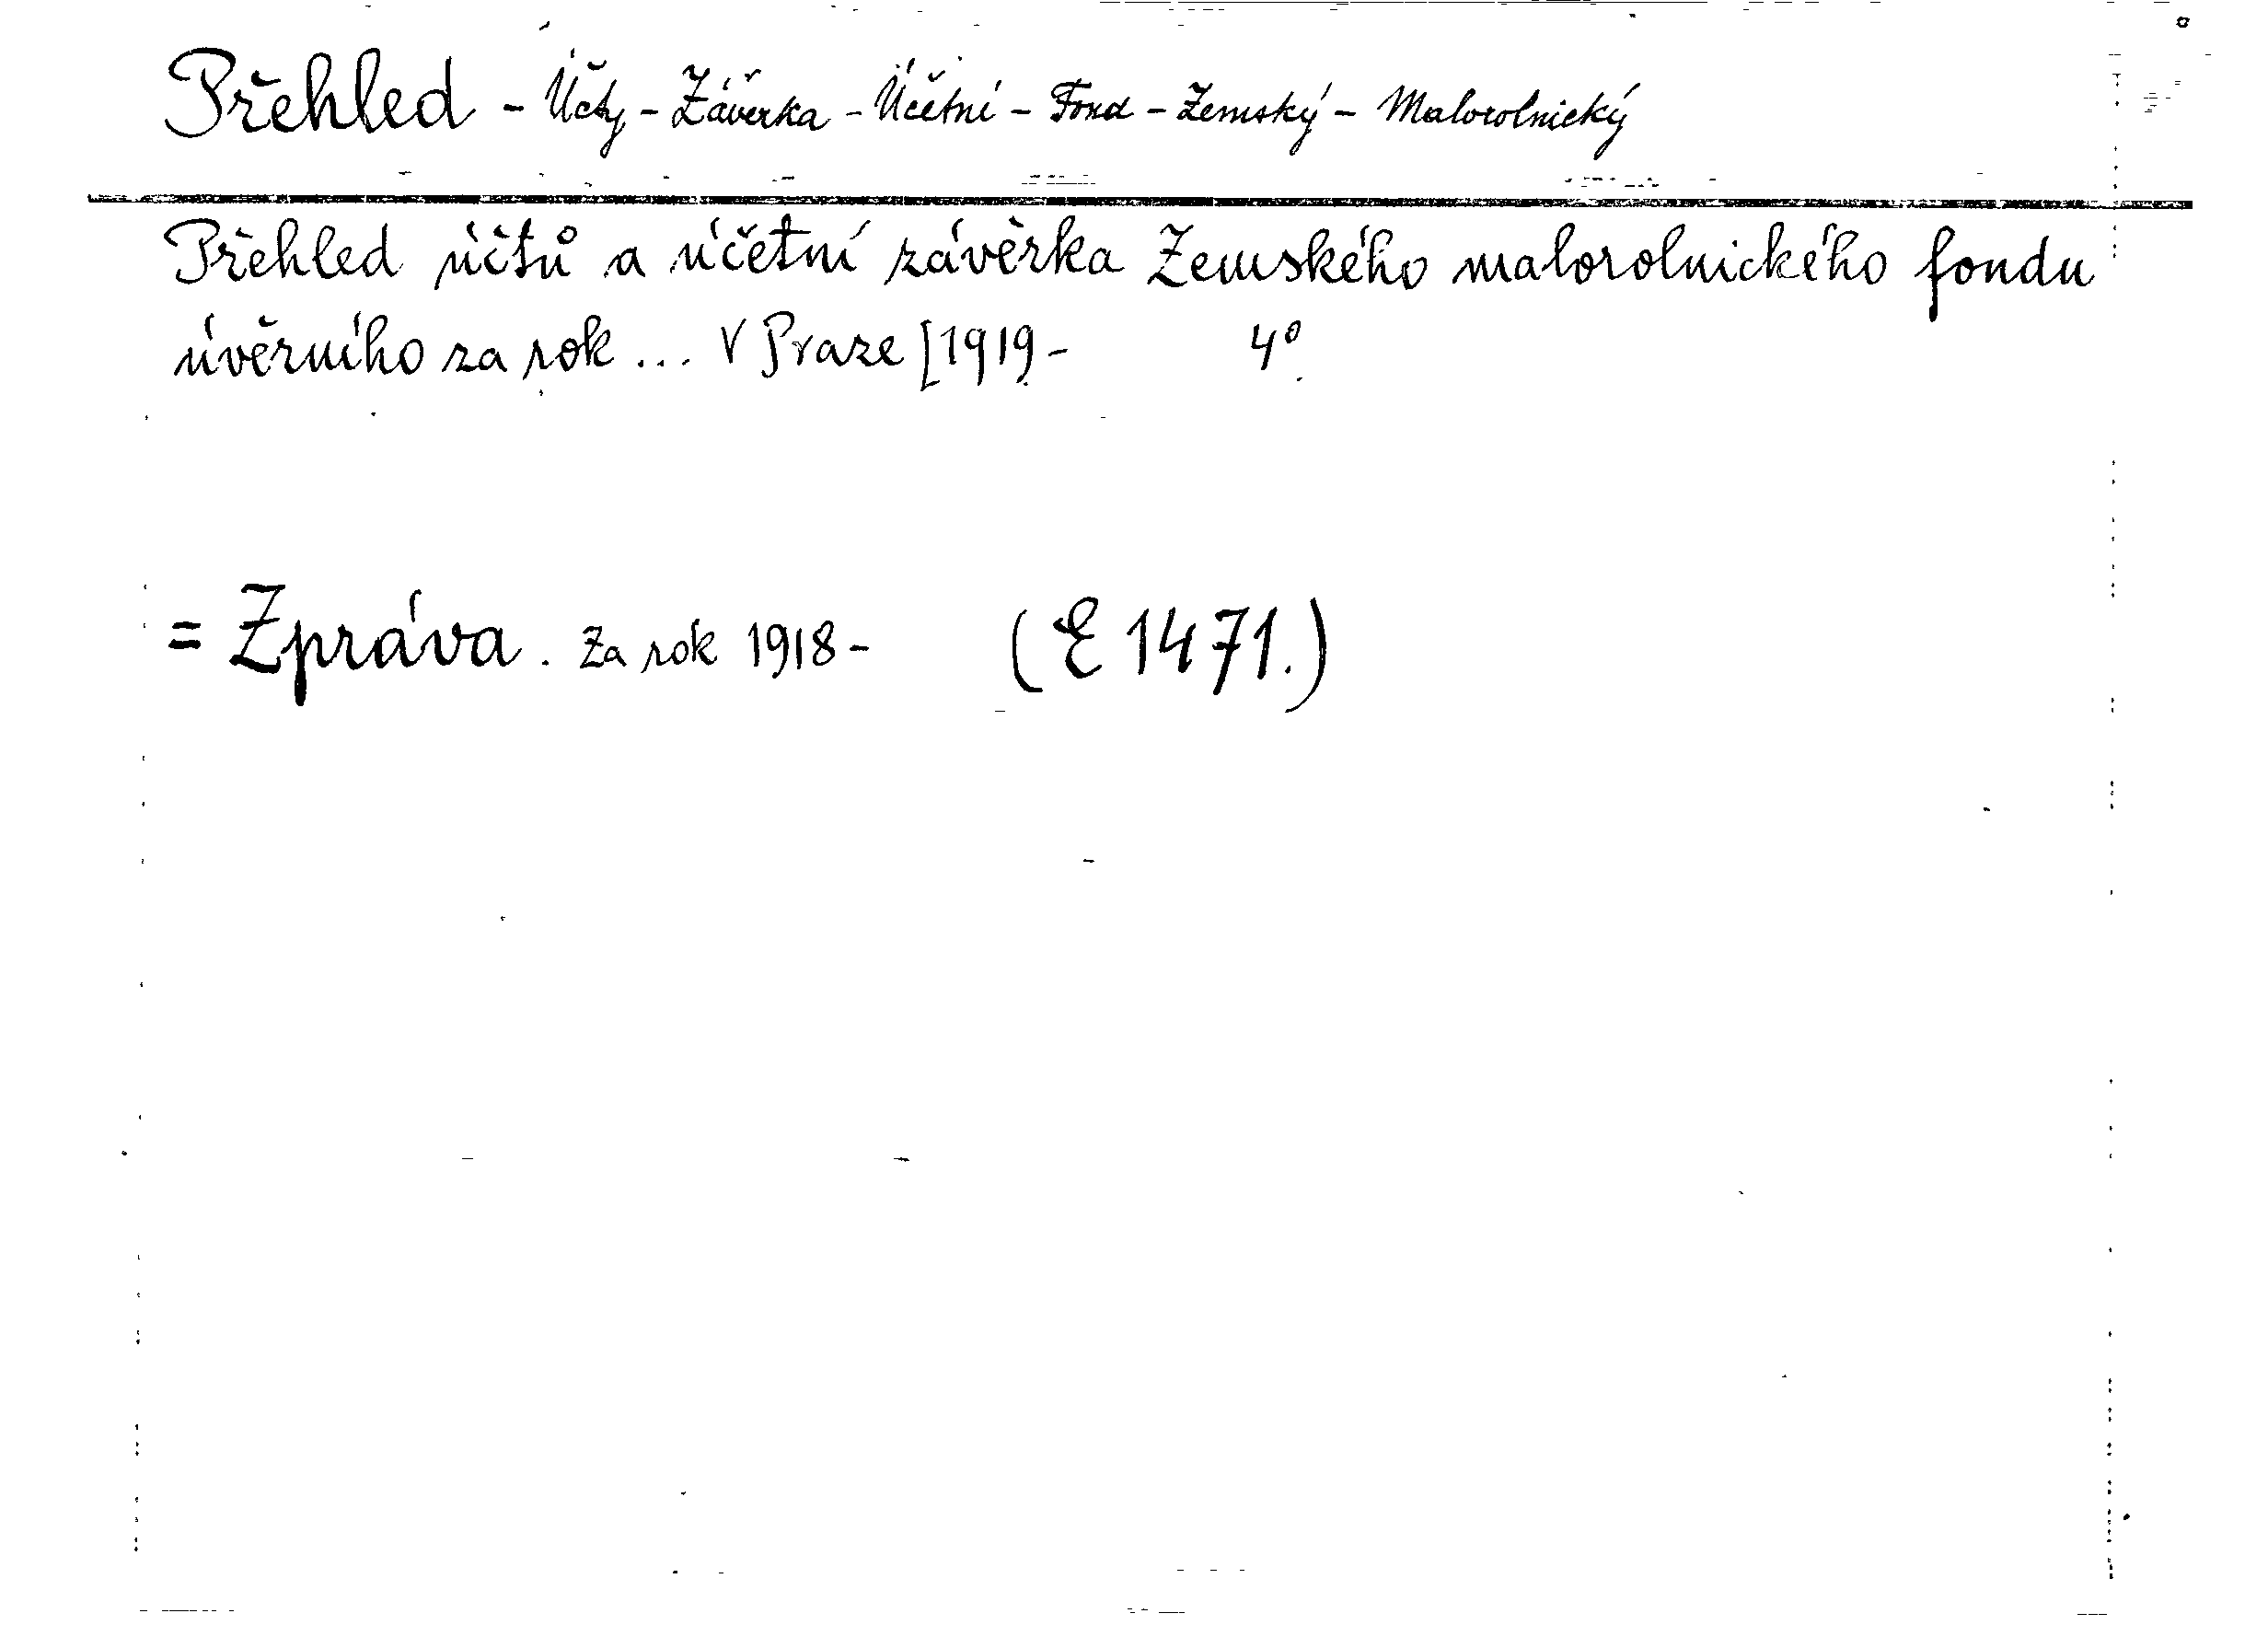 Přehled - Účty - Závěrka - Účetní - Fond - Zemský - Malorolnický
Přehled účtů a účetní závěrka Zemského malorolnického fondu
úvěrního za rok ... V Praze [1919- 4°
= Zpráva. Za rok 1918- (E 1471.)